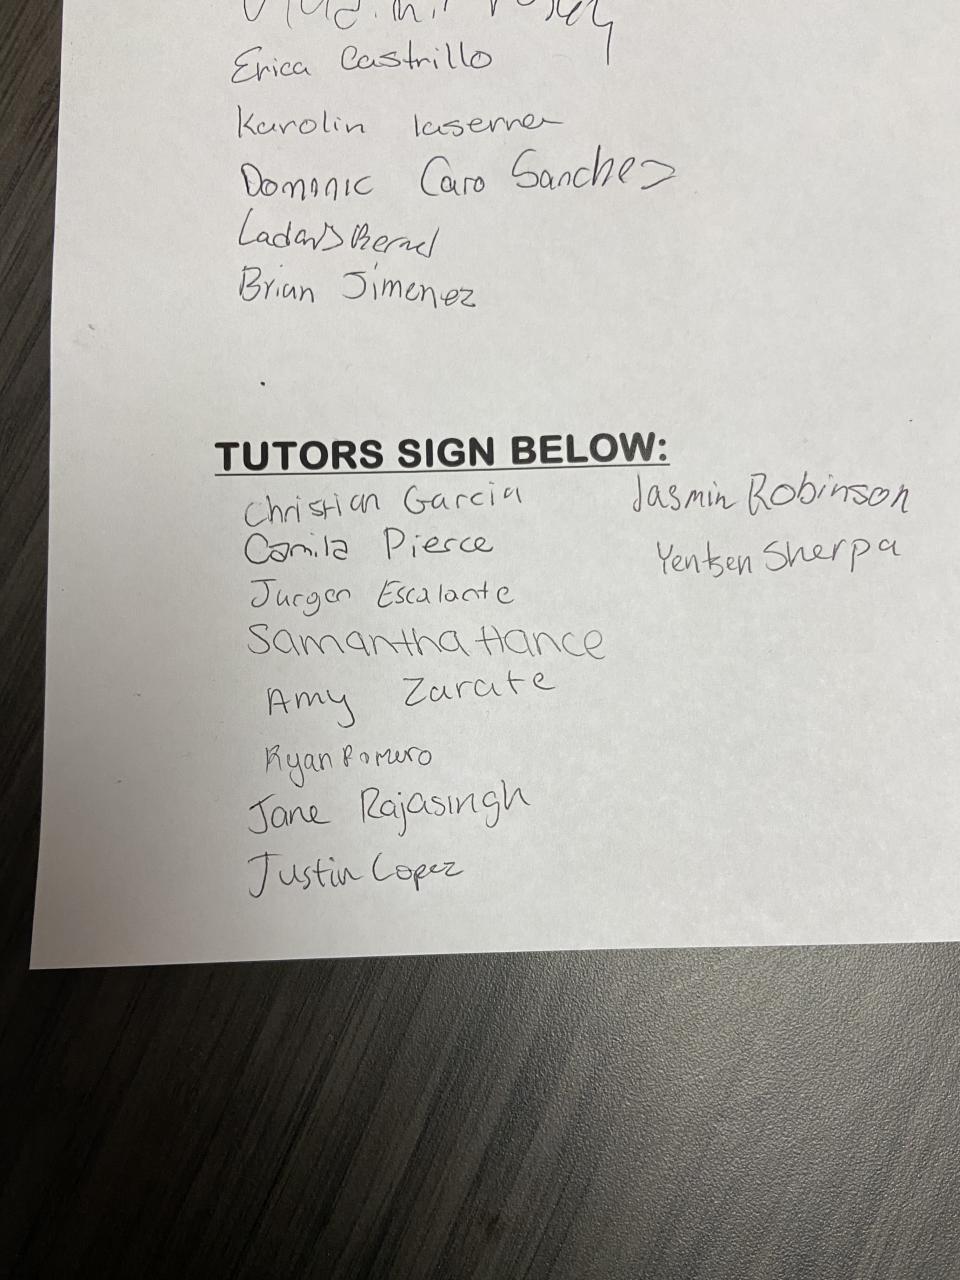 Erica Castrillo
Karolin laserna
Dominic Caro Sanchez
Brian Jimenez
TUTORS SIGN BELOW:
Christian Garcia
Jasmin Robinson
Camila Pierce
Yentsen Sherpa
Jurgen Escalante
Samantha Hance
Amy Zarate
Ryan Romero
Jane Rajasingh
Justin Lopez